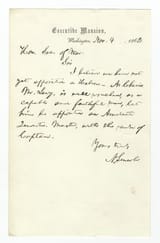 Executive Mansion,
Washington, Nov. 4, 1862
Hon. Sec. of War
Sir
I believe we have not
yet appointed a Hebrew. As
Mr. Levy, is well vouched, as a
capable and faithful man, let
him be appointed an Assistant
Quarter-Master, with the rank of
Captain.
Yours truly
A. Lincoln